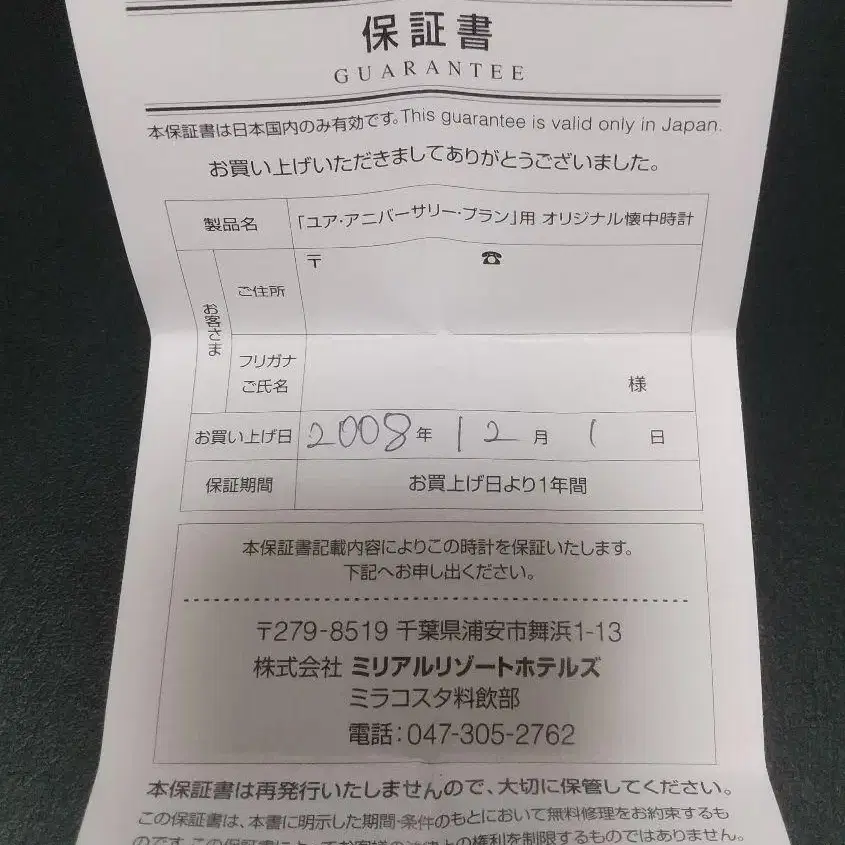 保証書
GUARANTEE
本保証書は日本国内のみ有効です。This guarantee is valid only in Japan.
お買い上げいただきましてありがとうございました。
製品名 「ユア・アニバーサリー・プラン」用 オリジナル懐中時計
お客さま
ご住所 〒 ☎
フリガナ
ご氏名 様
お買い上げ日 2008年 12月 1日
保証期間 お買上げ日より1年間
本保証書記載内容によりこの時計を保証いたします。
下記へお申し出ください。
〒279-8519 千葉県浦安市舞浜1-13
株式会社 ミリアルリゾートホテルズ
ミラコスタ料飲部
電話:047-305-2762
本保証書は再発行いたしませんので、大切に保管してください。
この保証書は、本書に明示した期間・条件のもとにおいて無料修理をお約束するも
のです。この保証書によってお客様の法律上の権利を制限するものではありません。